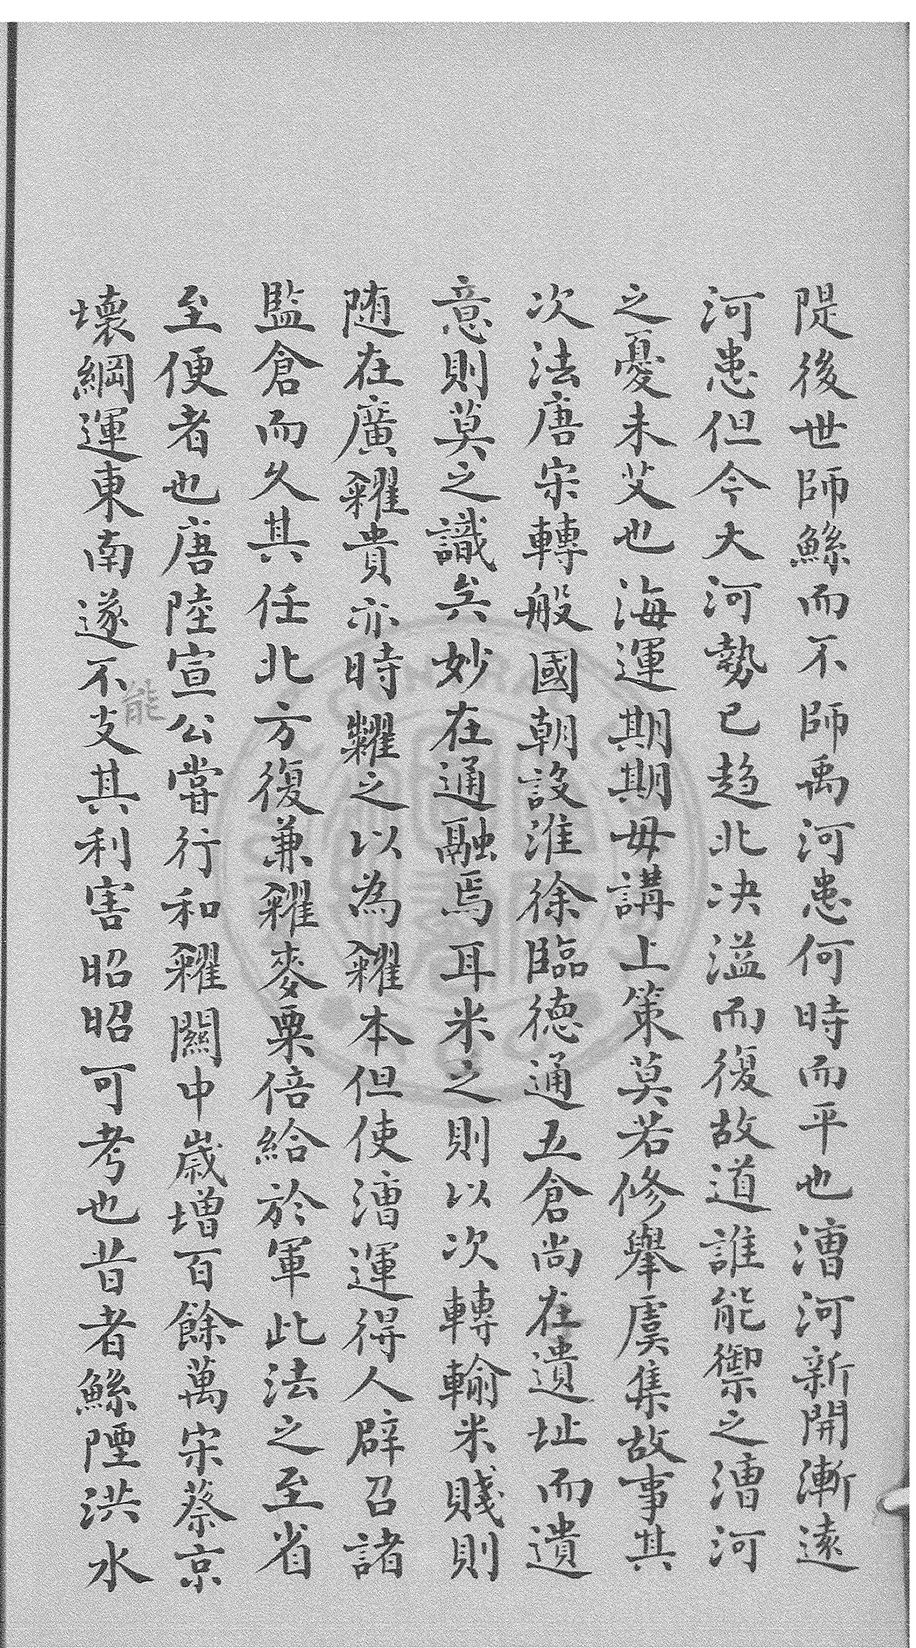 隄後世師鯀而不師禹河患何時而平也漕河新開漸遠
河患但今大河勢已趋北决溢而復故道誰能禦之漕河
之憂未艾也海運期期毋講上策莫若修舉虞集故事其
次法唐宋轉般國朝設淮徐臨德通五倉尚在遺址而遺
意則莫之識矣妙在通融焉耳米之則以次轉輸米賤則
随在廣糴貴亦時糶之以為糴本但使漕運得人辟召諸
監倉而久其任北方復兼糴麥粟倍給於軍此法之至省
至便者也唐陸宣公嘗行和糴關中歲增百餘萬宋蔡京
壞綱運東南遂不能支其利害昭昭可考也昔者鯀陻洪水